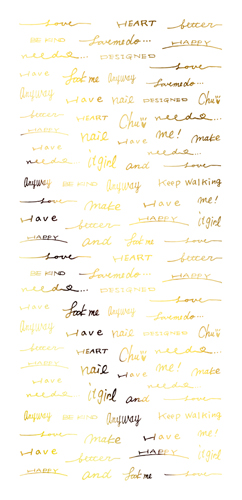 love HEART better
BE KIND Lovemedo... HAPPY
needs... DESIGNED love
Have Look me Anyway Lovemedo...
Anyway Have nail DESIGNED Chu
better HEART Chu needs...
HAPPY nail Have me! Make
needs... it girl and love
Anyway BE KIND Anyway Keep walking
love Make Have me!
Have better HAPPY it girl
HAPPY and Look me love
love HEART better
BE KIND Lovemedo... HAPPY
needs... DESIGNED love
Have Look me Anyway Lovemedo...
Anyway Have nail DESIGNED Chu
better HEART Chu needs...
HAPPY nail Have me! Make
needs... it girl and love
Anyway BE KIND Anyway Keep walking
love Make Have me!
Have better HAPPY it girl
HAPPY and Look me love